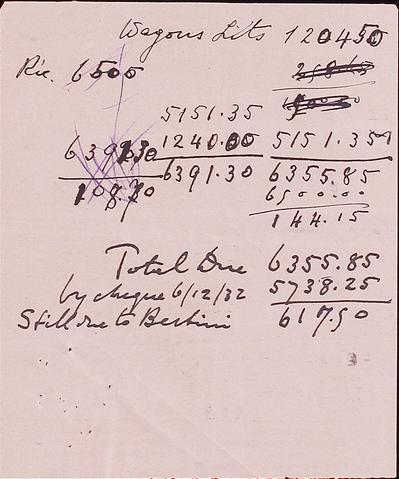 Wagons Lits 120450
Ric. 6500
5151.35
639130 1240.00 5151.35
10870 6391.30 6355.85
6500.00
144.15
Total Due 6355.85
by cheque 6/12/32 5738.25
Still due to Bertini 617.50